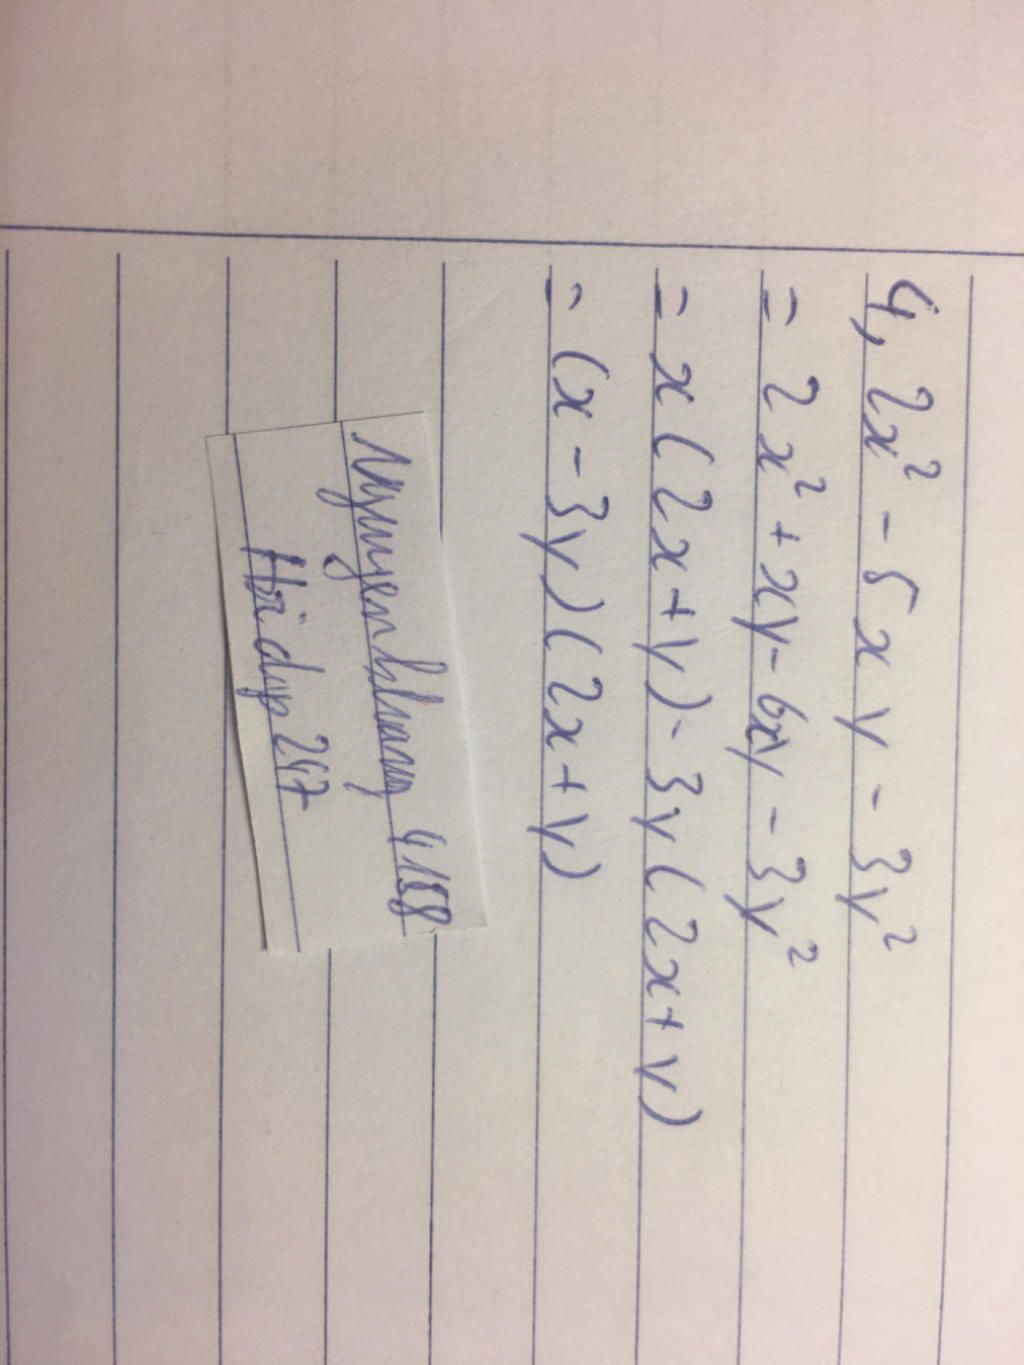 4, 2x² - 5xy - 3y²
= 2x² + xy - 6xy - 3y²
= x(2x+y) - 3y(2x+y)
= (x - 3y)(2x+y)
Nguyenhluong 4158
Hoidap247